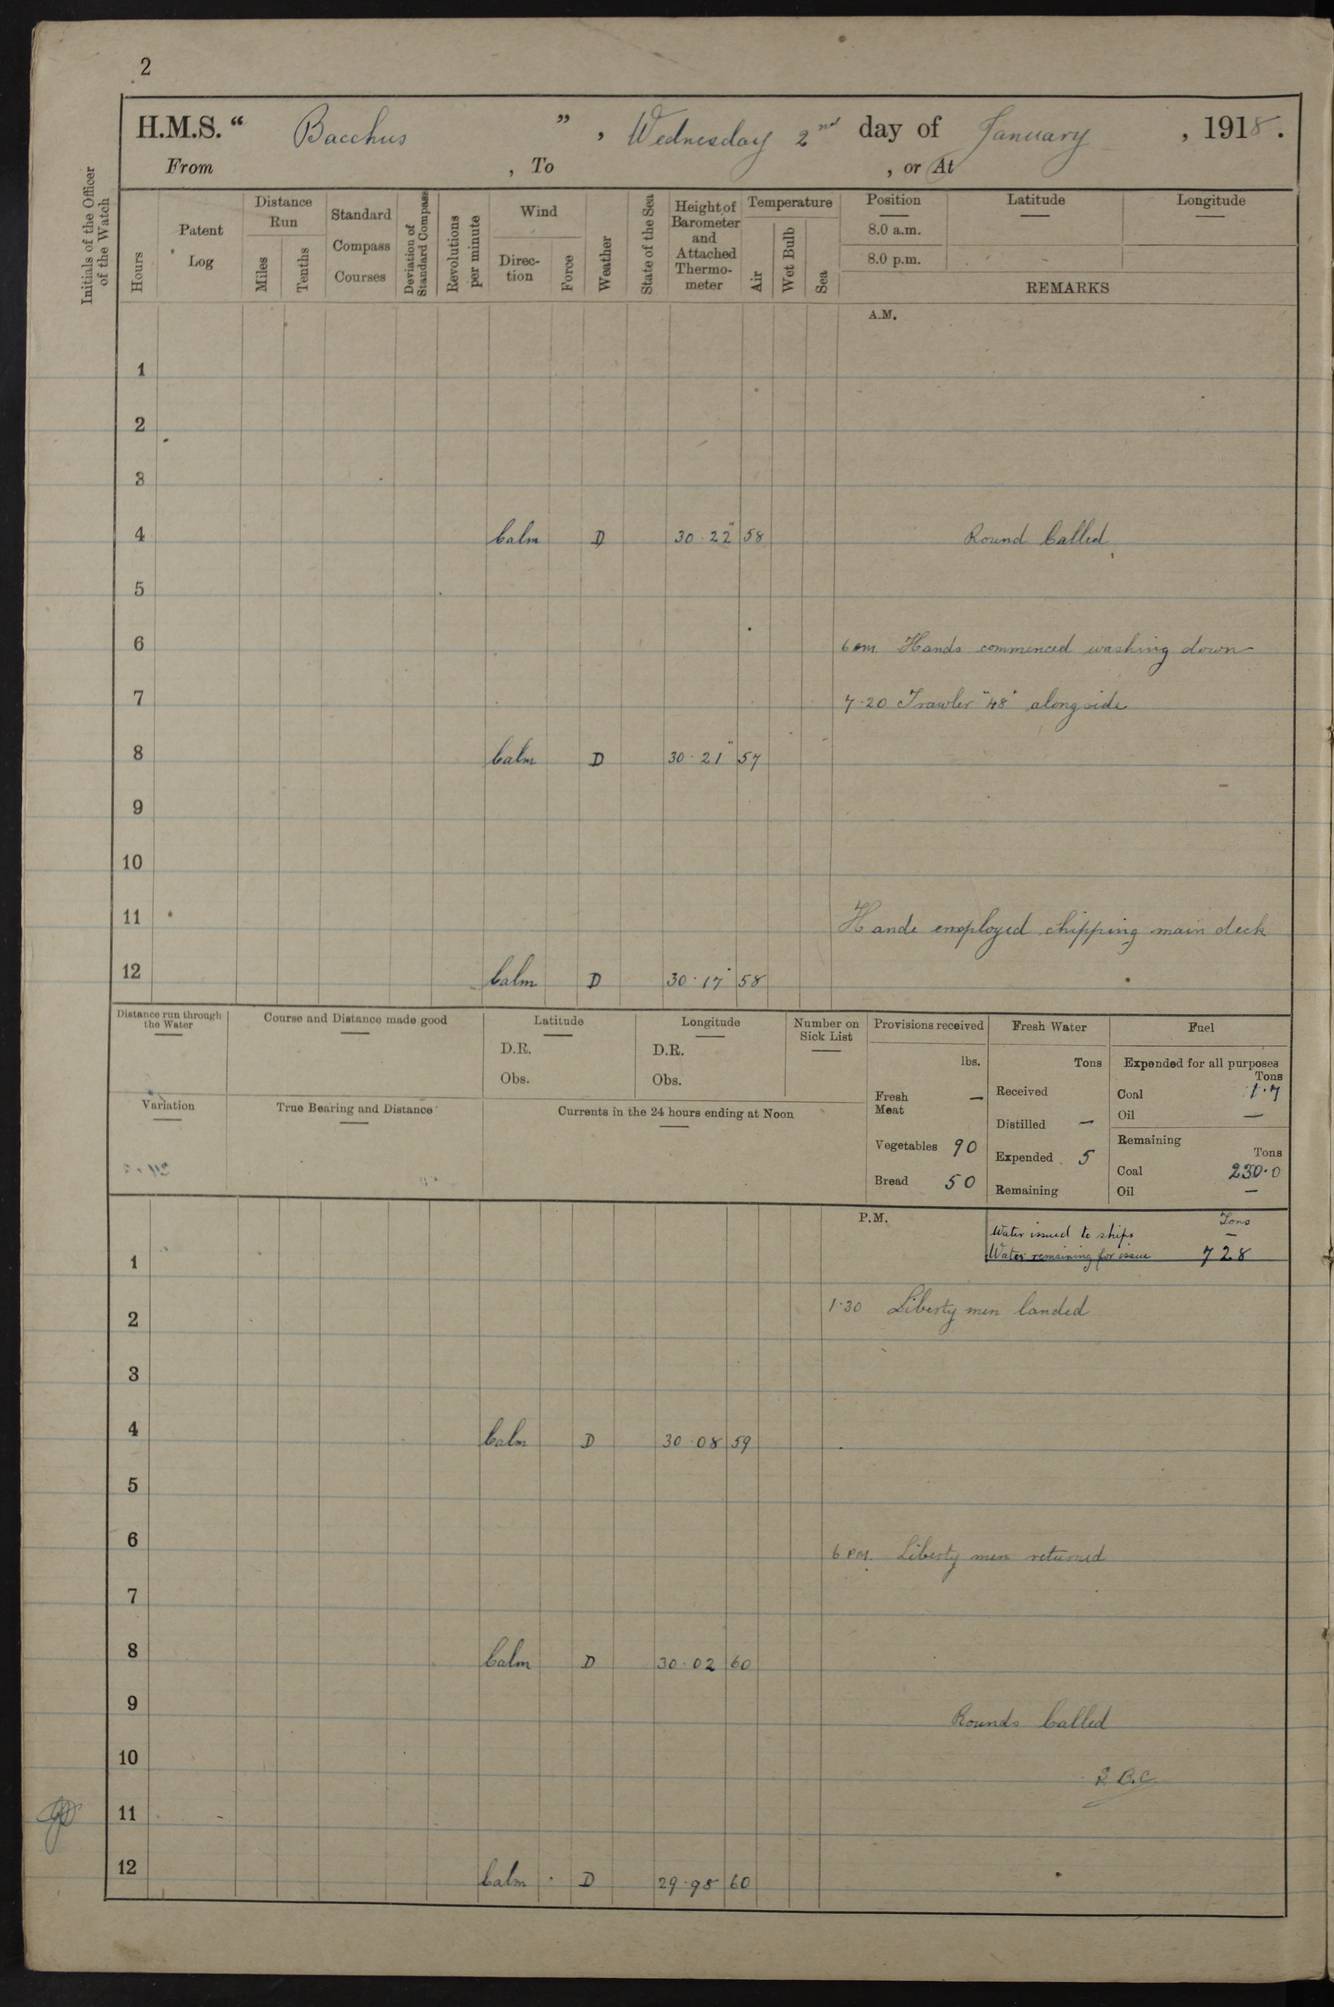 2
H.M.S. “ Bacchus ” , Wednesday 2nd day of January , 1918.
From , To , or At
Initials of the Officer of the Watch
Hours
Patent Log
Distance Run
Miles
Tenths
Standard Compass Courses
Deviation of Standard Compass
Revolutions per minute
Wind
Direction
Force
Weather
State of the Sea
Height of Barometer and Attached Thermometer
Temperature
Air
Wet Bulb
Sea
Position
8.0 a.m.
8.0 p.m.
Latitude
Longitude
REMARKS
A.M.
1
2
3
4 Calm D 30.22" 58 Round Called
5
6 6 am. Hands commenced washing down
7 7.20 Trawler "48" alongside
8 Calm D 30.21" 57
9
10
11 Hands employed chipping main deck
12 Calm D 30.17" 58
Distance run through the Water
Course and Distance made good
Latitude
D.R.
Obs.
Longitude
D.R.
Obs.
Number on Sick List
Provisions received
lbs.
Fresh Meat —
Vegetables 90
Bread 50
Fresh Water
Tons
Received
Distilled —
Expended 5
Remaining
Fuel
Expended for all purposes
Tons
Coal 1.7
Oil —
Remaining
Tons
Coal 230.0
Oil —
Variation
True Bearing and Distance
Currents in the 24 hours ending at Noon
P.M.
Tons
Water issued to ships —
Water remaining for issue 728
1
2 1.30 Liberty men landed
3
4 Calm D 30.08 59
5
6 6 PM. Liberty men returned
7
8 Calm D 30.02 60
9 Rounds Called
10
11
12 Calm D 29.98 60